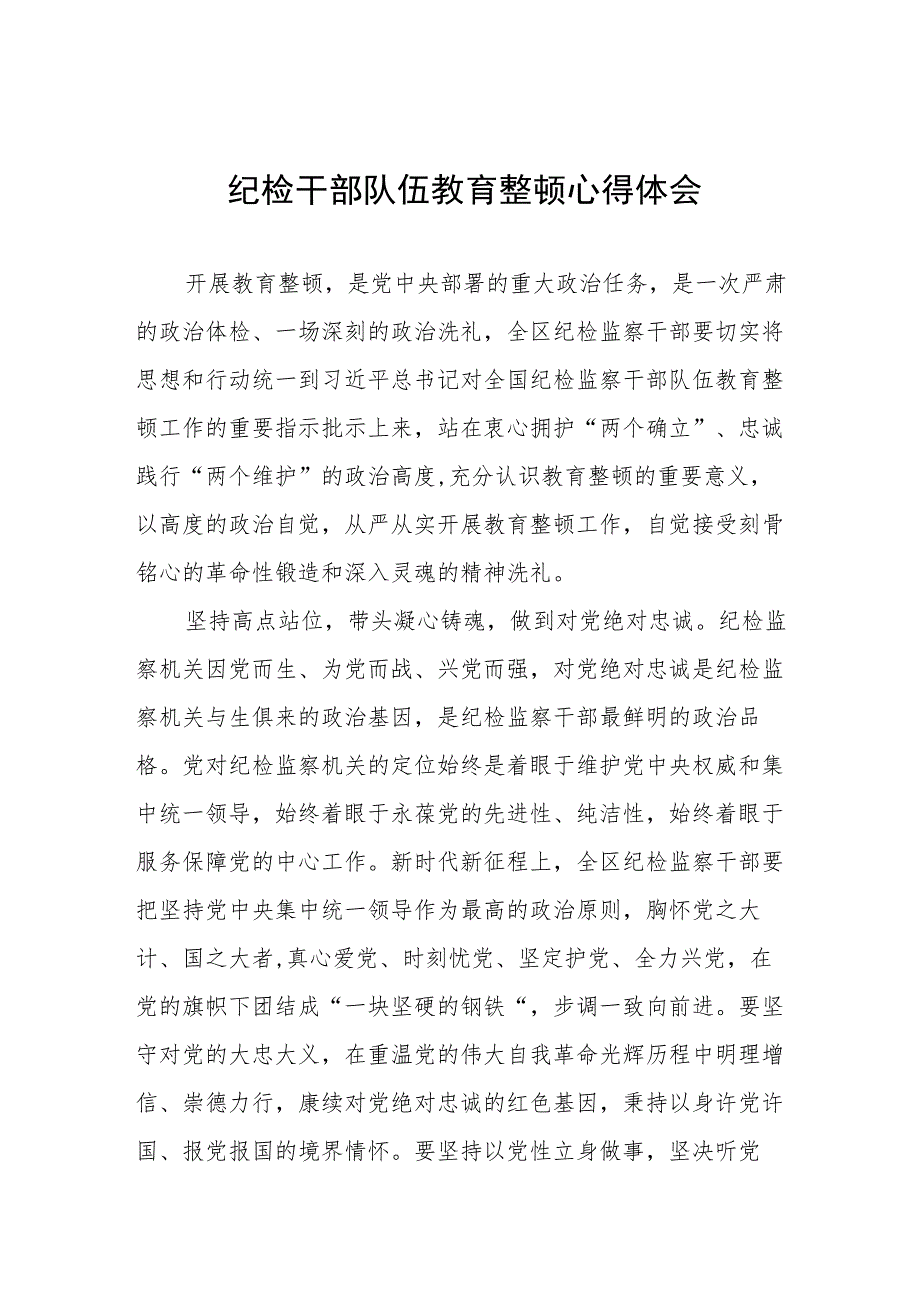 纪检干部队伍教育整顿心得体会
开展教育整顿，是党中央部署的重大政治任务，是一次严肃
的政治体检、一场深刻的政治洗礼，全区纪检监察干部要切实将
思想和行动统一到习近平总书记对全国纪检监察干部队伍教育整
顿工作的重要指示批示上来，站在衷心拥护“两个确立”、忠诚
践行“两个维护”的政治高度,充分认识教育整顿的重要意义，
以高度的政治自觉，从严从实开展教育整顿工作，自觉接受刻骨
铭心的革命性锻造和深入灵魂的精神洗礼。
坚持高点站位，带头凝心铸魂，做到对党绝对忠诚。纪检监
察机关因党而生、为党而战、兴党而强，对党绝对忠诚是纪检监
察机关与生俱来的政治基因，是纪检监察干部最鲜明的政治品
格。党对纪检监察机关的定位始终是着眼于维护党中央权威和集
中统一领导，始终着眼于永葆党的先进性、纯洁性，始终着眼于
服务保障党的中心工作。新时代新征程上，全区纪检监察干部要
把坚持党中央集中统一领导作为最高的政治原则，胸怀党之大
计、国之大者,真心爱党、时刻忧党、坚定护党、全力兴党，在
党的旗帜下团结成“一块坚硬的钢铁“，步调一致向前进。要坚
守对党的大忠大义，在重温党的伟大自我革命光辉历程中明理增
信、崇德力行，康续对党绝对忠诚的红色基因，秉持以身许党许
国、报党报国的境界情怀。要坚持以党性立身做事，坚决听党